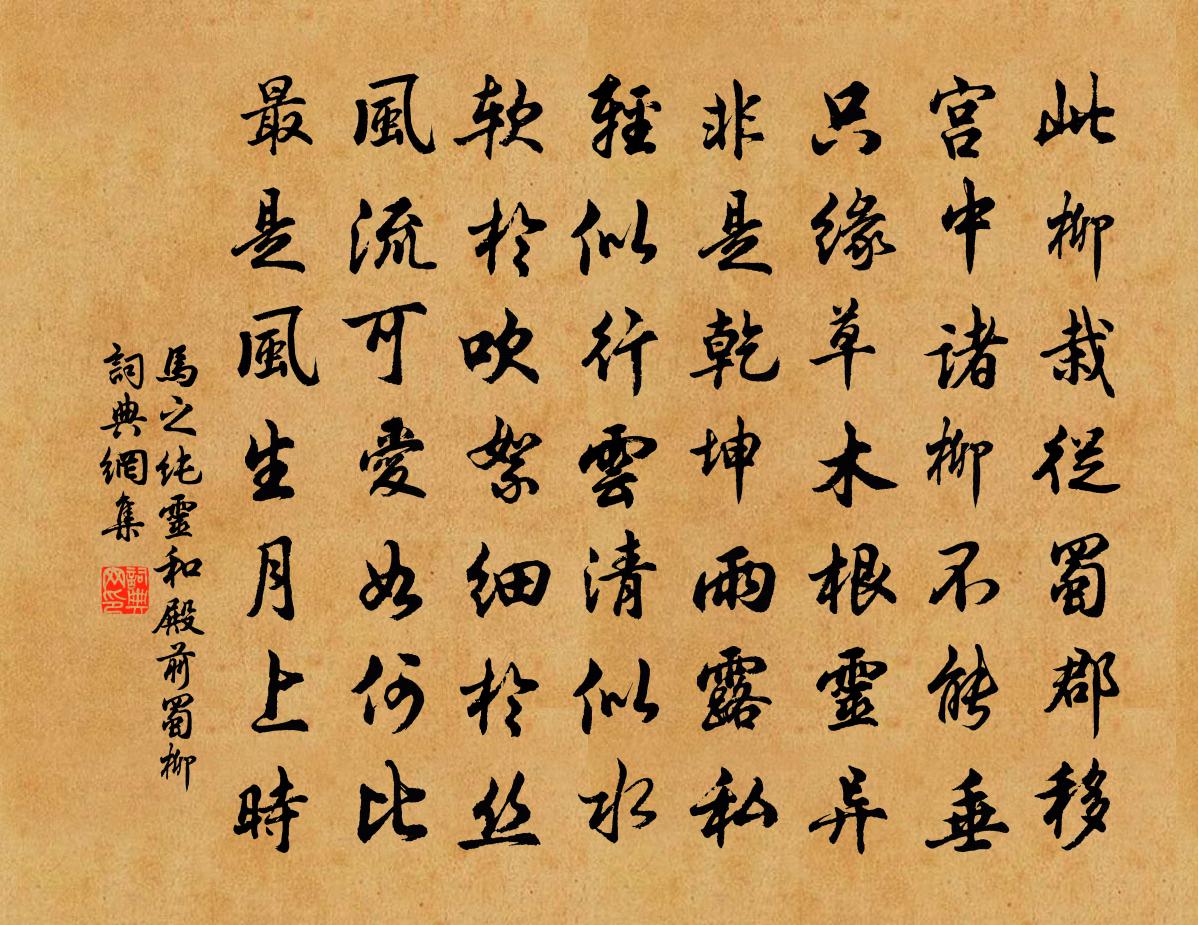 此柳栽從蜀郡移
宮中諸柳不能垂
只緣草木根靈异
非是乾坤雨露私
輕似行雲清似水
軟於吹絮細於丝
風流可愛如何比
最是風生月上時
馬之純靈和殿前蜀柳
詞典網集
詞典網印